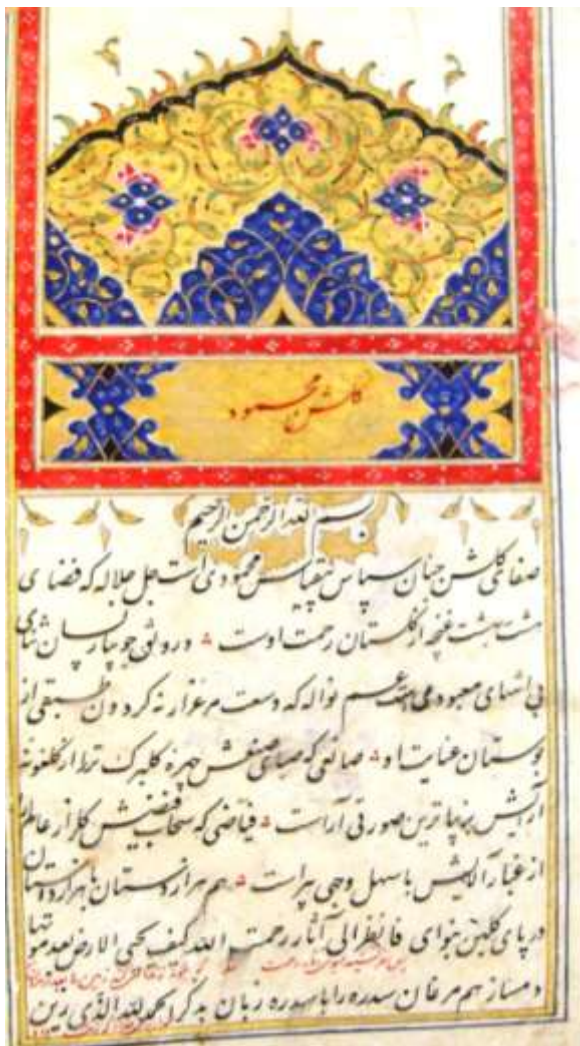 گلشن محمود
بسم الله الرحمن الرحیم
صفای گلشن جنان سپاس بیقیاس محمودی است جل جلاله که فضای
هشت بهشت غنچه از گلستان رحمت اوست و رونق جویبار لسان ثنای
بی انتهای معبودی است عم نواله که دست مرغزار نه کردون طبقی از
بوستان عنایت او صانعی که صبای صنعش چهره گلبرک تر را از گلگونه
آرایش بزیباترین صورتی آراست فیاضی که سحاب فیضش گلزار عالم را
از غبار آلایش باسهل وجهی پیراست هم هزاردستان با هزار دستان
در پای گلبن بنوای فانظر الی آثار رحمت الله کیف یحیی الارض بعد موتها
دمساز هم مرغان سدره را با سدره زبان بذکر الحمد لله الذی زین